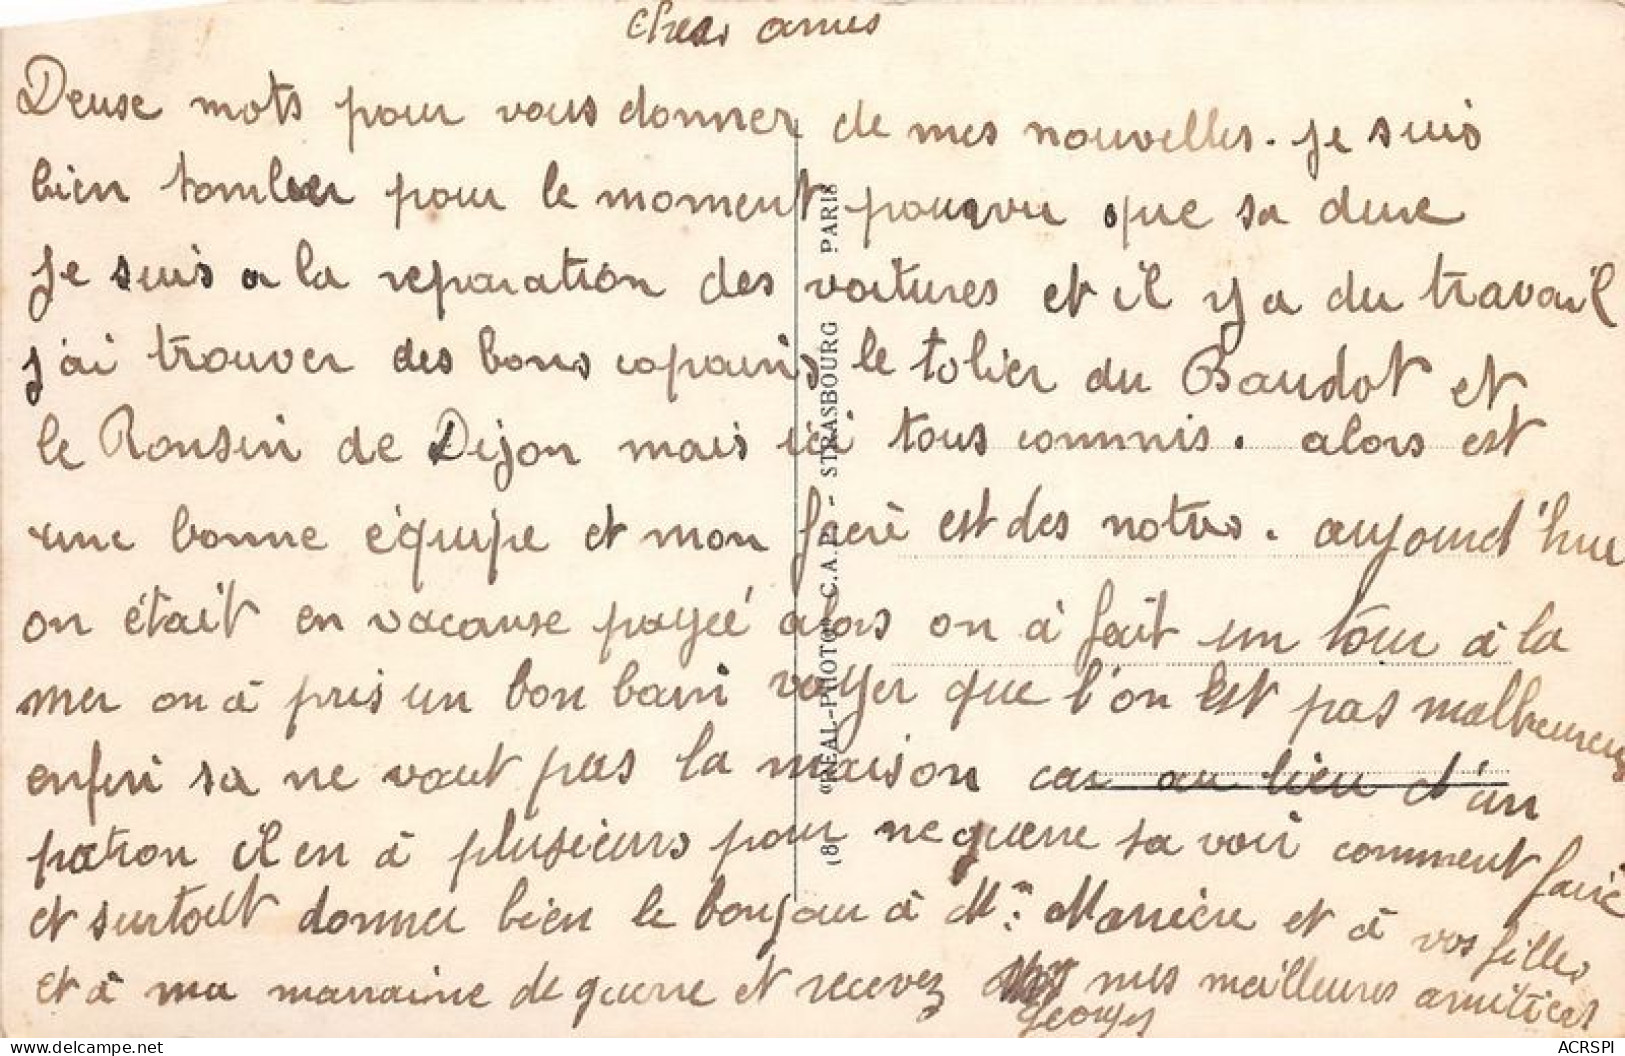 Chers amis
Deuse mots pour vous donner de mes nouvelles. je suis
bien tomber pour le moment pourvu que sa dure
je suis a la reparation des voitures et il y a du travail
j'ai trouver des bons copains le tolier du Baudot et
le Ronsin de Dijon mais ici tous commis. alors est
une bonne équipe et mon frere est des notres. aujourd'hui
on était en vacanse payeé alors on à fait un tour à la
mer on à pris un bon bain voyer que l'on est pas malheureux
enfin sa ne vaut pas la maison car au lieu d'un
patron il en à plusieurs pour ne guerre sa voir comment faire
et surtout donner bien le bonjour à Mm: Marrière et à vos filles
et à ma marraine de guerre et recevez mes meilleures amitiées
Georges
"REAL-PHOTO" C.A.P. - STRASBOURG PARIS
ACRSPI